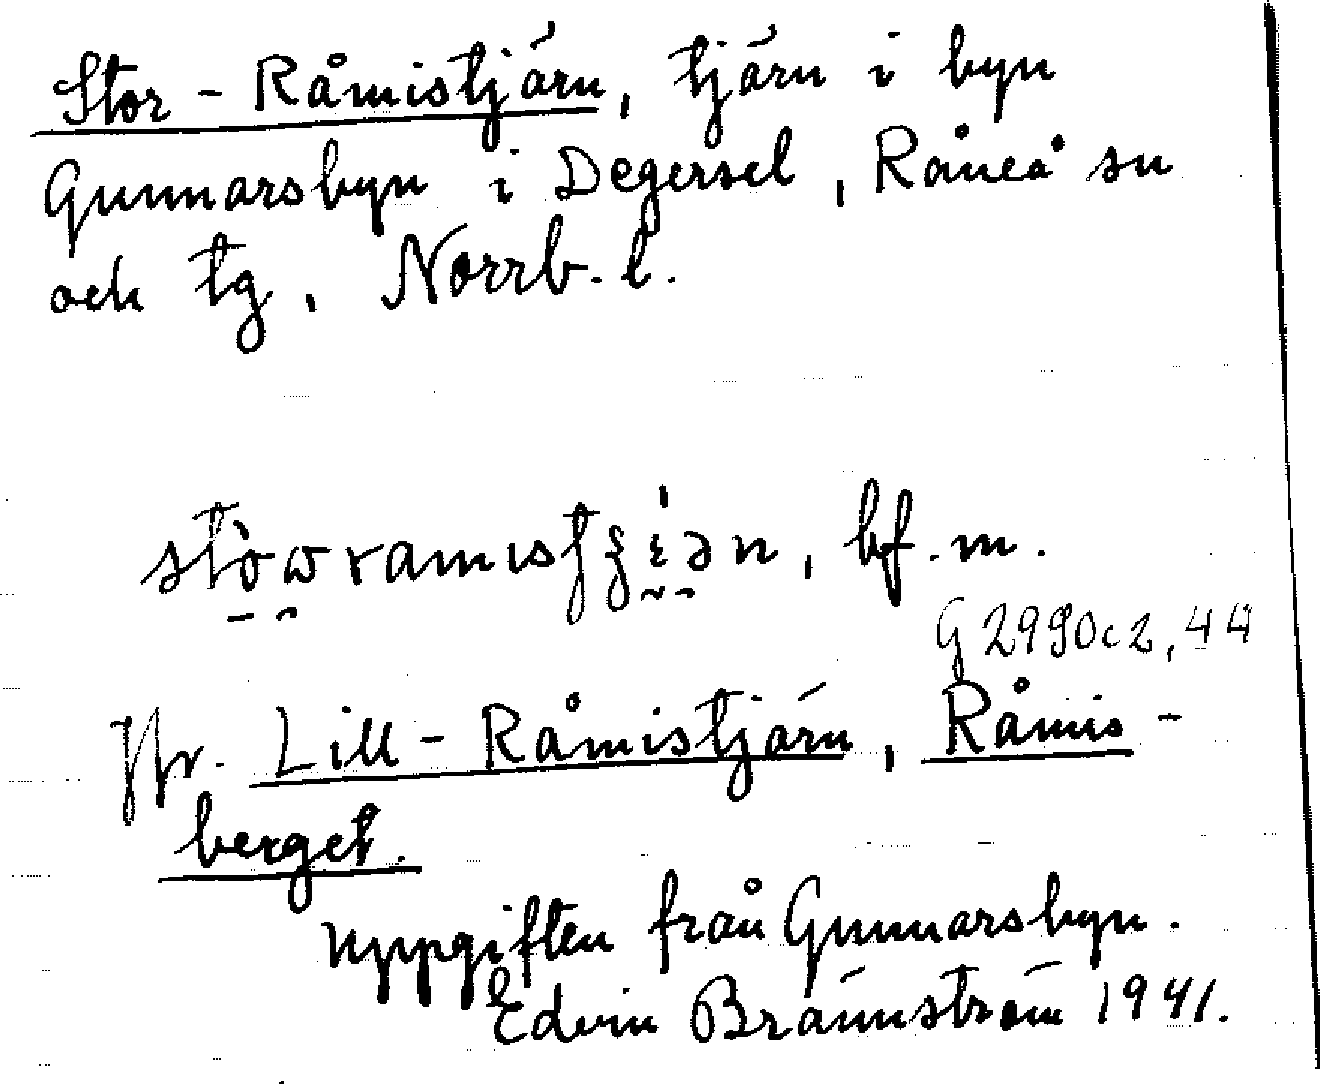 Stor-Råmistjärn, tjärn i byn
Gunnarsbyn i Degersel, Råneå sn
och tg, Norrb. l.
bf. m.
G 2990c2, 44
Jfr. Lill-Råmistjärn, Råmis-
berget.
Uppgiften från Gunnarsbyn.
Edvin Brännström 1941.